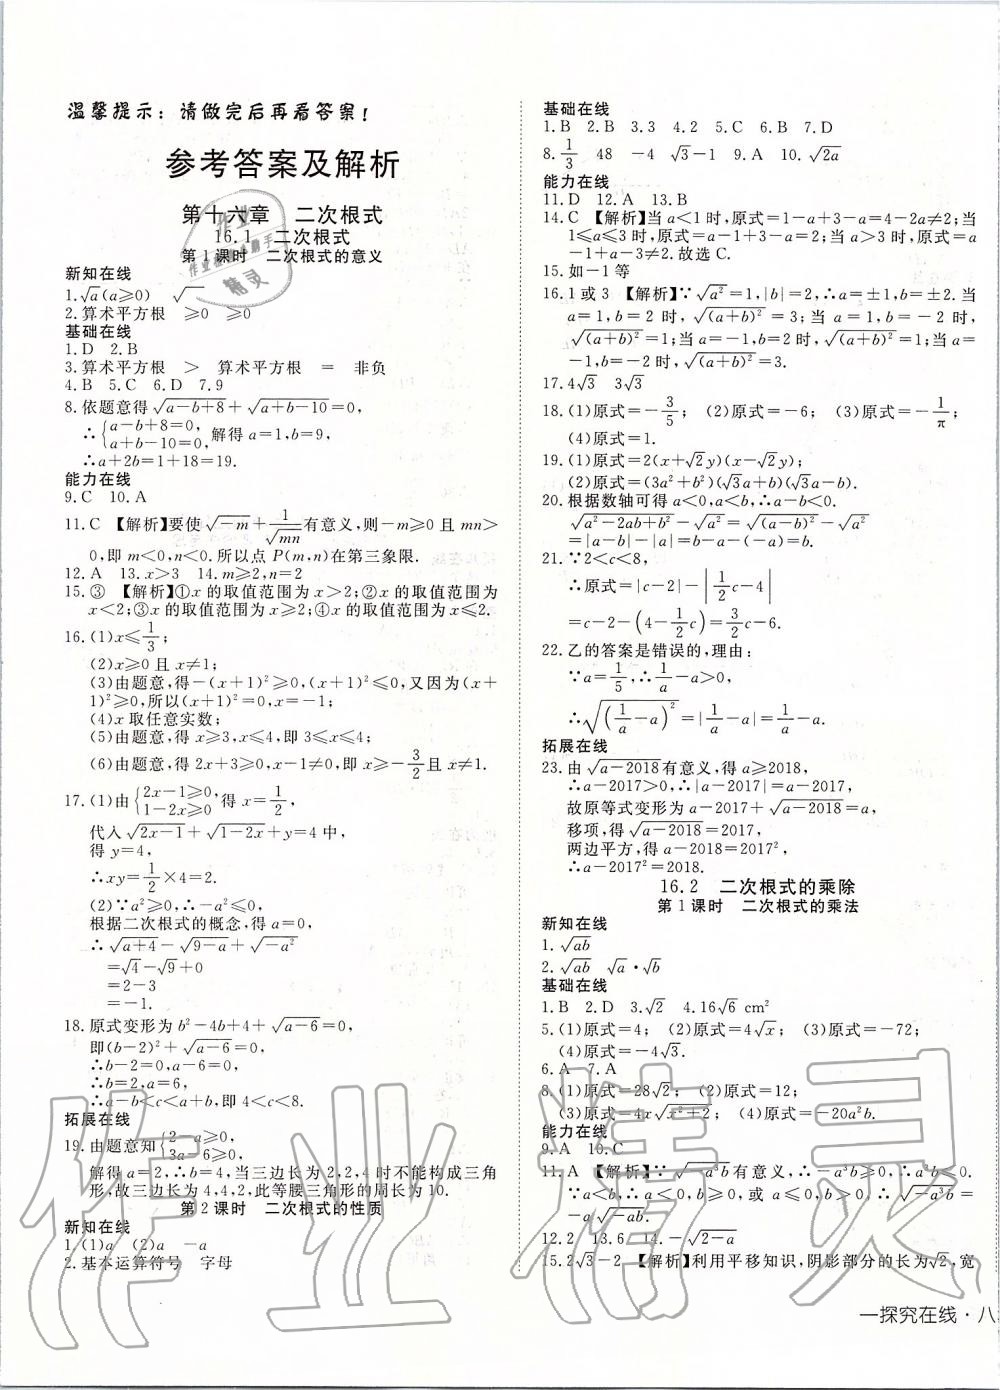 温馨提示：请做完后再看答案！
参考答案及解析
第十六章 二次根式
16.1 二次根式
第1课时 二次根式的意义
新知在线
1.√a(a≥0) √
2.算术平方根 ≥0 ≥0
基础在线
1.D 2.B
3.算术平方根 > 算术平方根 = 非负
4.B 5.C 6.D 7.9
8.依题意得√(a-b+8)+√(a+b-10)=0,
∴{a-b+8=0, a+b-10=0, 解得a=1,b=9,
∴a+2b=1+18=19.
能力在线
9.C 10.A
11.C 【解析】要使√(-m)+1/√(mn)有意义,则-m≥0且mn>
0,即m<0,n<0.所以点P(m,n)在第三象限.
12.A 13.x>3 14.m≥2,n=2
15.③ 【解析】①x的取值范围为x>2;②x的取值范围为
x<2;③x的取值范围为x≥2;④x的取值范围为x≤2.
16.(1)x≤1/3;
(2)x≥0且x≠1;
(3)由题意,得-(x+1)²≥0,(x+1)²≤0,又因为(x+
1)²≥0,所以(x+1)²=0,x=-1;
(4)x取任意实数;
(5)由题意,得x≥3,x≤4,即3≤x≤4;
(6)由题意,得2x+3≥0,x-1≠0,即x≥-3/2且x≠1.
17.(1)由{2x-1≥0, 1-2x≥0, 得x=1/2,
代入√(2x-1)+√(1-2x)+y=4中,
得y=4,
∴xy=1/2×4=2.
(2)∵a²≥0,∴-a²≤0,
根据二次根式的概念,得a=0,
∴√(a+4)-√(9-a)+√(-a²)
=√4-√9+0
=2-3
=-1.
18.原式变形为b²-4b+4+√(a-6)=0,
即(b-2)²+√(a-6)=0,
∴b-2=0,a-6=0,
∴b=2,a=6,
∴a-b<c<a+b,即4<c<8.
拓展在线
19.由题意知{2-a≥0, 3a-6≥0,
解得a=2,∴b=4,当三边长为2,2,4时不能构成三角
形,故三边长为4,4,2,此等腰三角形的周长为10.
第2课时 二次根式的性质
新知在线
1.(1)a (2)a -a
2.基本运算符号 字母
基础在线
1.B 2.B 3.3 4.2 5.C 6.B 7.D
8.1/3 48 -4 √3-1 9.A 10.√(2a)
能力在线
11.D 12.A 13.B
14.C 【解析】当a<1时,原式=1-a+3-a=4-2a≠2;当
1≤a≤3时,原式=a-1+3-a=2;当a>3时,原式=a
-1+a-3≠2.故选C.
15.如-1等
16.1或3 【解析】∵√(a²)=1,|b|=2,∴a=±1,b=±2.当
a=1,b=2时,√((a+b)²)=3;当a=1,b=-2时,
√((a+b)²)=1;当a=-1,b=2时,√((a+b)²)=1;当
a=-1,b=-2时,√((a+b)²)=3.
17.4√3 3√3
18.(1)原式=-3/5; (2)原式=-6; (3)原式=-1/π;
(4)原式=1.
19.(1)原式=2(x+√2y)(x-√2y);
(2)原式=(3a²+b²)(√3a+b)(√3a-b).
20.根据数轴可得a<0,a<b,∴a-b<0.
√(a²-2ab+b²)-√(a²)=√((a-b)²)-√(a²)
=|a-b|-|a|=b-a-(-a)=b.
21.∵2<c<8,
∴原式=|c-2|-|1/2c-4|
=c-2-(4-1/2c)=3/2c-6.
22.乙的答案是错误的,理由:
∵a=1/5,∴1/a-a>0,
∴√((1/a-a)²)=|1/a-a|=1/a-a.
拓展在线
23.由√(a-2018)有意义,得a≥2018,
∴a-2017>0,∴|a-2017|=a-2017,
故原等式变形为a-2017+√(a-2018)=a,
移项,得√(a-2018)=2017,
两边平方,得a-2018=2017²,
∴a-2017²=2018.
16.2 二次根式的乘除
第1课时 二次根式的乘法
新知在线
1.√(ab)
2.√(ab) √a·√b
基础在线
1.B 2.D 3.√2 4.16√6 cm²
5.(1)原式=4; (2)原式=4√x; (3)原式=-72;
(4)原式=-4√3.
6.A 7.A
8.(1)原式=28√2; (2)原式=12;
(3)原式=4x√(x²+2); (4)原式=-20a²b.
能力在线
9.A 10.C
11.A 【解析】∵√(-a³b)有意义,∴-a³b≥0,∴a³b≤0.
∵a<b,∴a<0,b≥0,或a≤0,b>0,∴√(-a³b)=
-a√(-ab).
12.2 13.6 14.-√(2-a)
15.2√3-2 【解析】利用平移知识,阴影部分的长为√2,宽
一探究在线·八
作业精灵